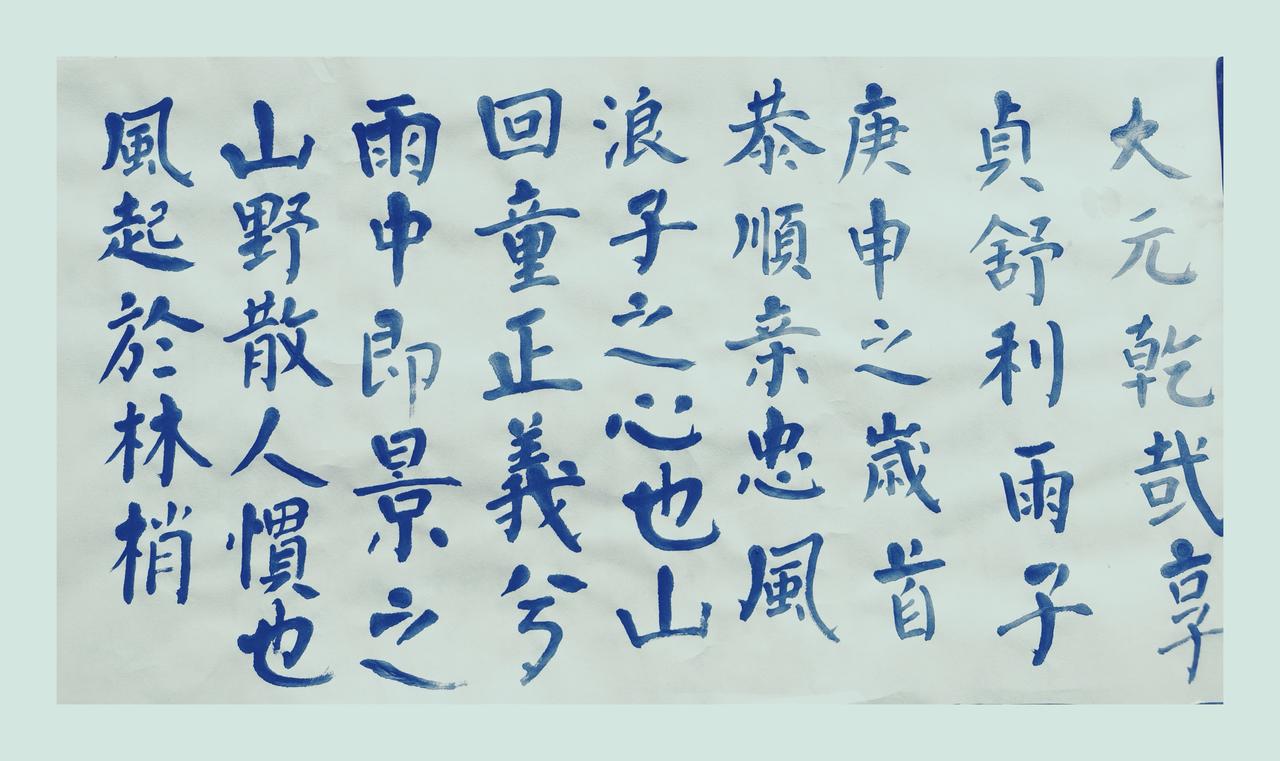 大元乾哉享
貞舒利雨子
庚申之歲首
恭順亲忠風
浪子之心也山
回童正義兮
雨中即景之
山野散人慣也
風起於林梢